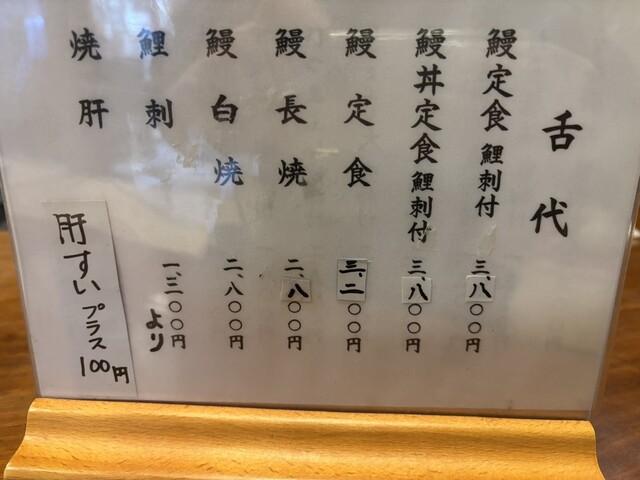 舌代
鰻定食 鯉刺付 三、八〇〇円
鰻丼定食 鯉刺付 三、八〇〇円
鰻定食 三、二〇〇円
鰻長焼 二、八〇〇円
鰻白焼 二、八〇〇円
鯉刺 一、三〇〇円より
焼肝
肝すい プラス 100円